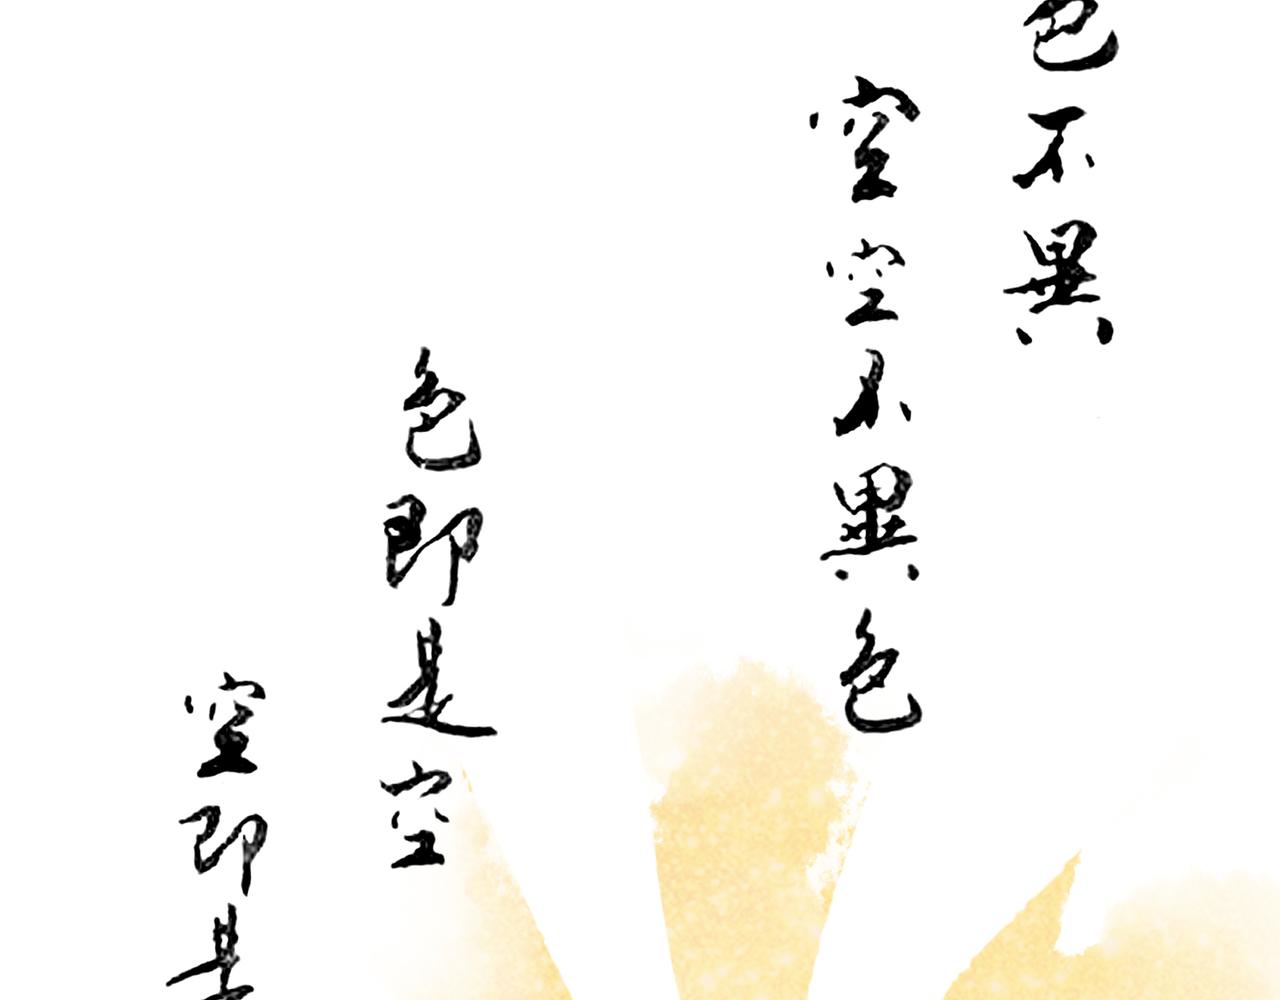 色不異
空空不異色
色即是空
空即是